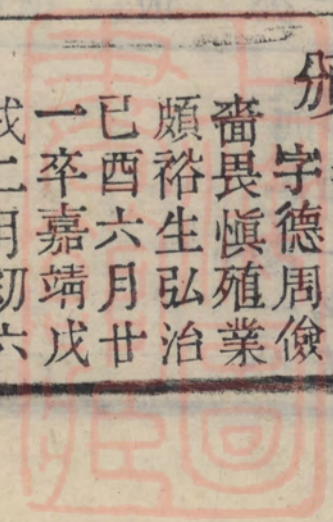 頒
字德周儉
嗇畏慎殖業
頗裕生弘治
己酉六月廿
一卒嘉靖戊
戌二月初六